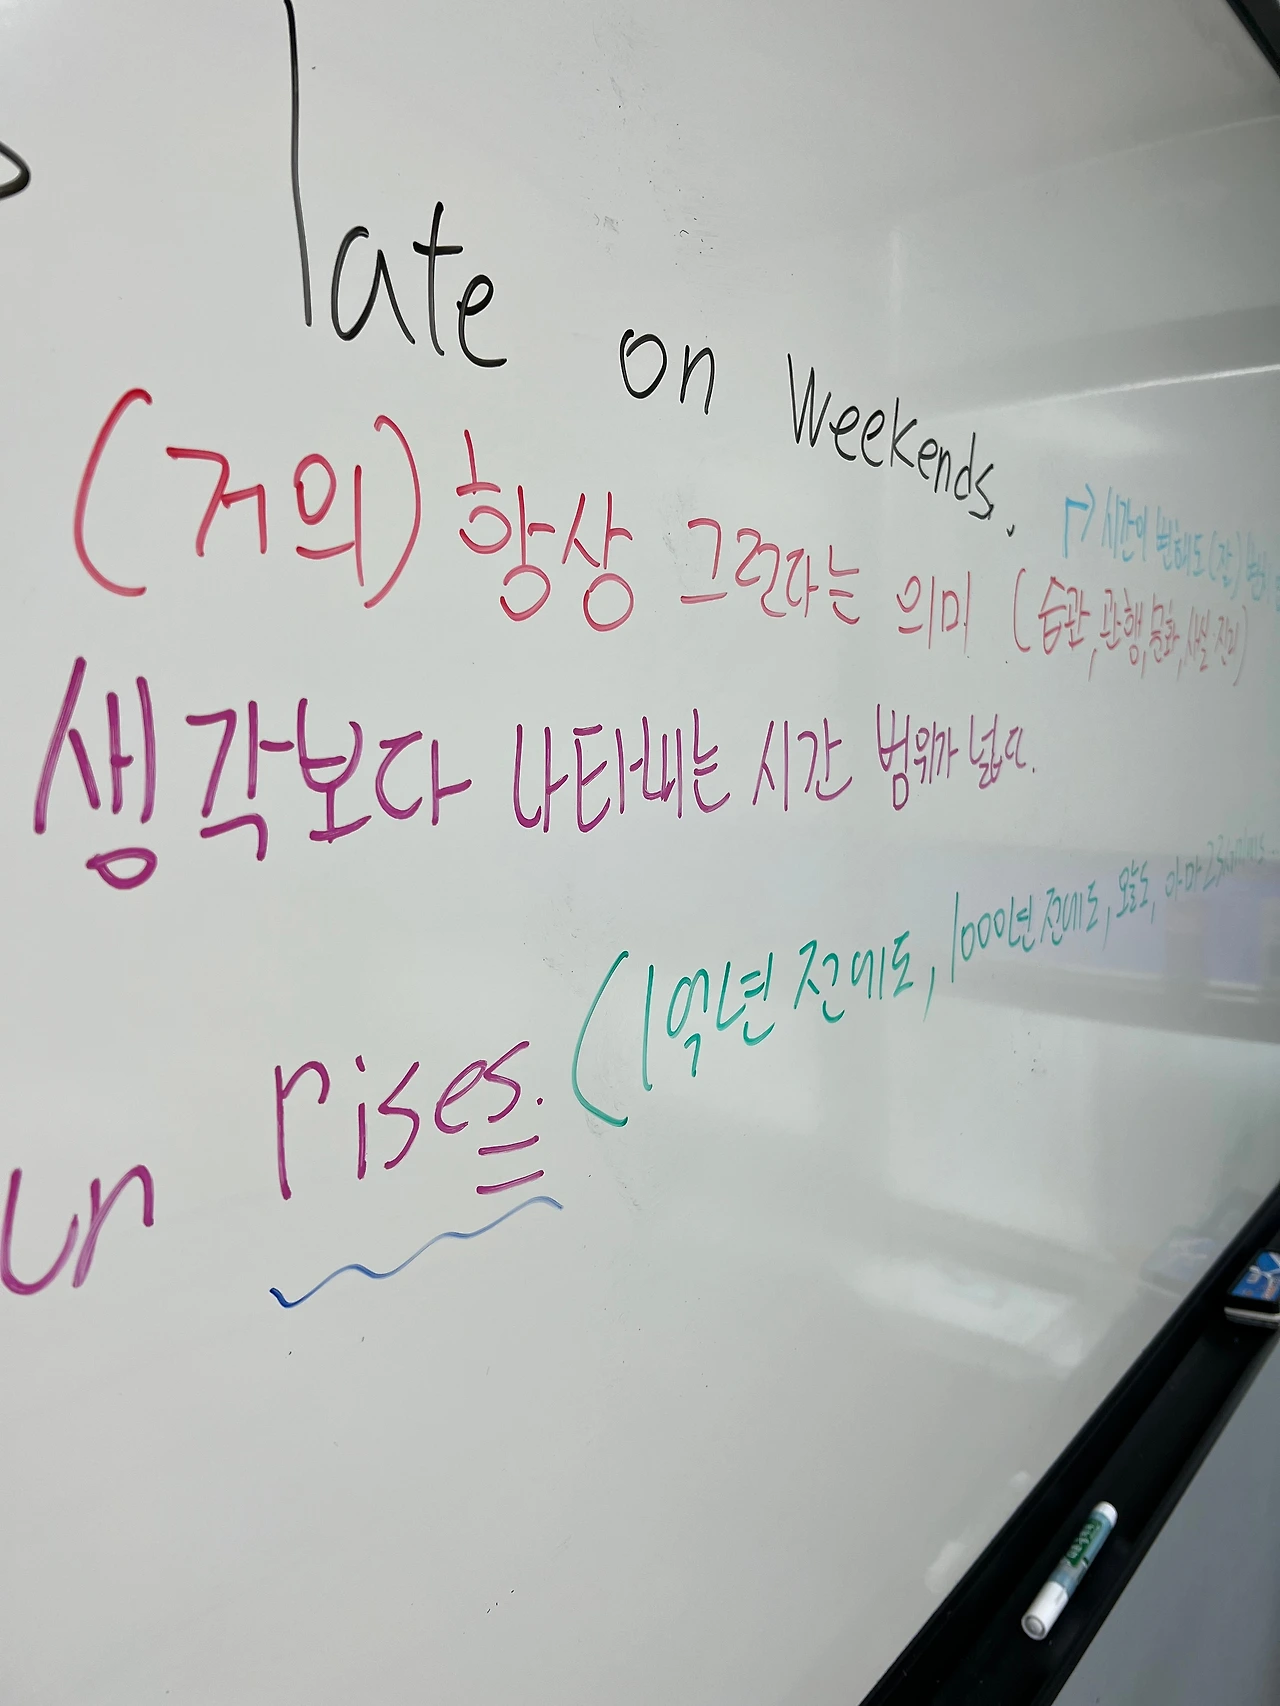 late on weekends.
→ 시간이 변해도 (잘)
(거의) 항상 그런다는 의미 (습관, 관행, 문화, 사실·진리)
생각보다 나타내는 시간 범위가 넓다.
un rises. (1억년 전에도, 1000년 전에도, 오늘도, 아마